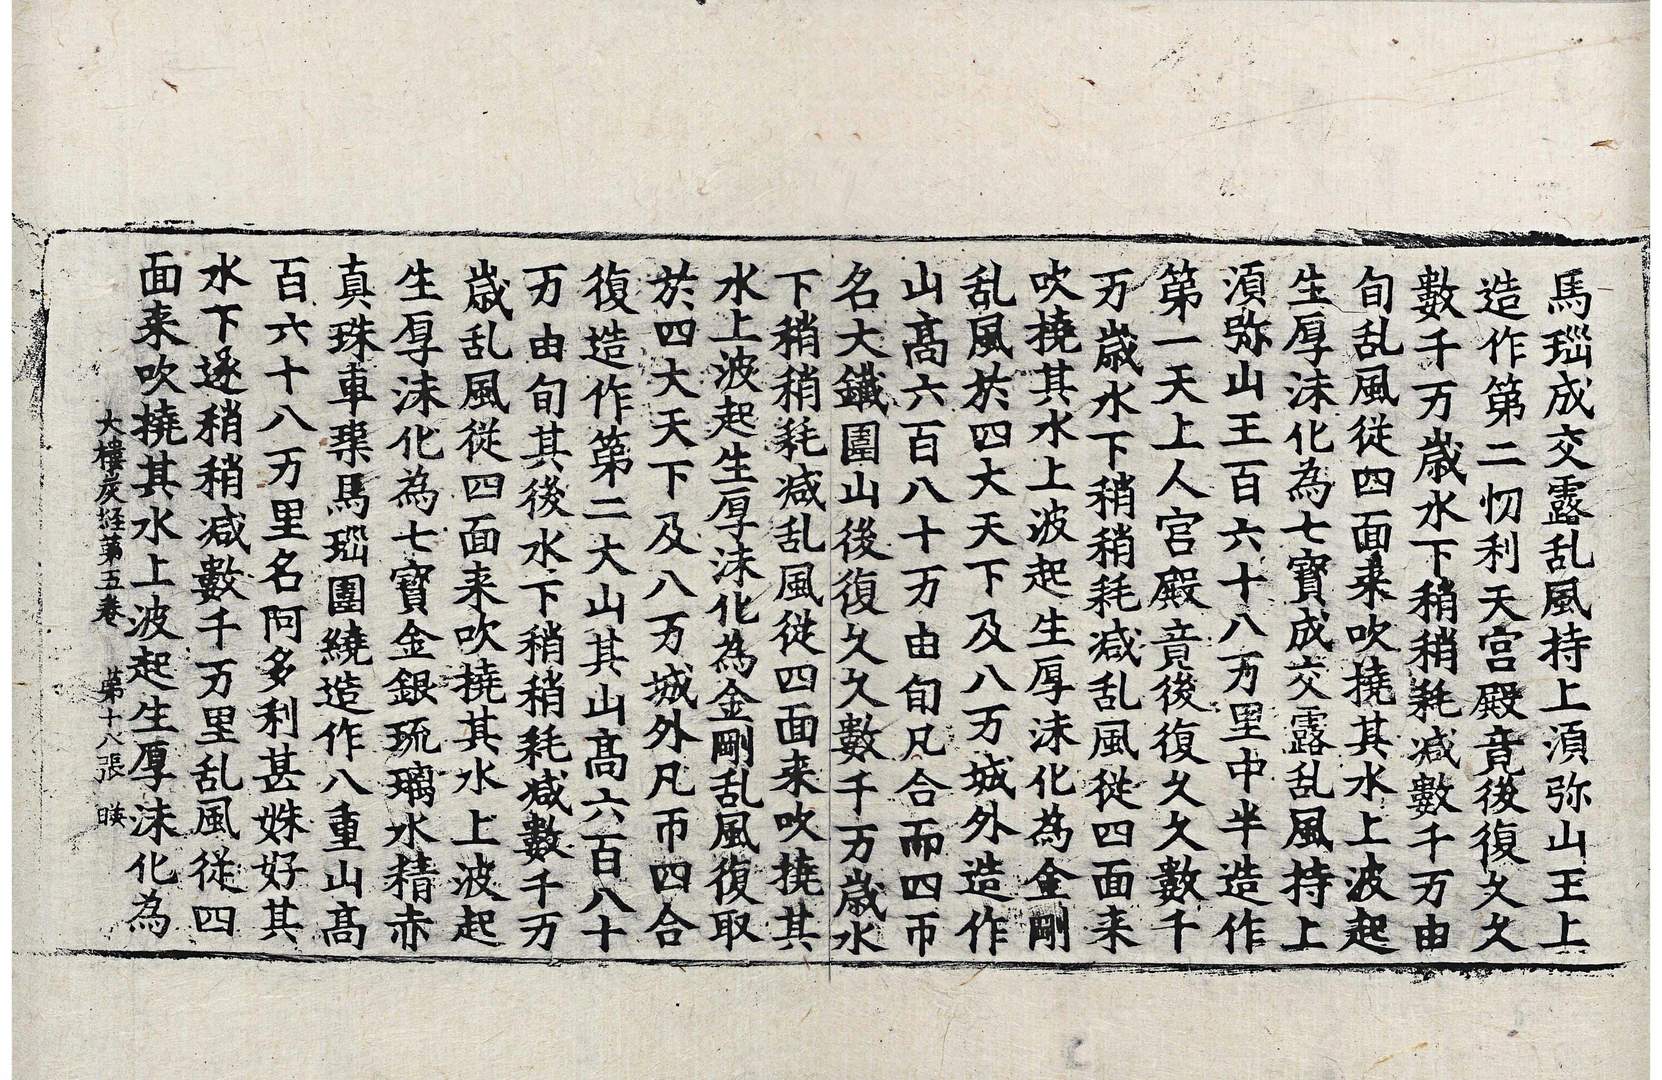 馬瑙成交露乱風持上須弥山王上
造作第二忉利天宫殿竟後復久久
數千万歲水下稍稍耗减數千万由
旬乱風従四面来吹撓其水上波起
生厚沫化為七寶成交露乱風持上
須弥山王百六十八万里中半造作
第一天上人宫殿竟後復久久數千
万歲水下稍稍耗减乱風従四面来
吹撓其水上波起生厚沫化為金剛
乱風於四大天下及八万城外造作
山髙六百八十万由旬凡合而四帀
名大鐵圍山後復久久數千万歲水
下稍稍耗减乱風従四面来吹撓其
水上波起生厚沫化為金剛乱風復取
於四大天下及八万城外凡帀四合
復造作第二大山其山髙六百八十
万由旬其後水下稍稍耗减數千万
歲乱風従四面来吹撓其水上波起
生厚沫化為七寶金銀琉璃水精赤
真珠車璖馬瑙圍繞造作八重山髙
百六十八万里名阿多利甚姝好其
水下遂稍稍减數千万里乱風従四
面来吹撓其水上波起生厚沫化為
大樓炭経第五卷 第十八張 暎